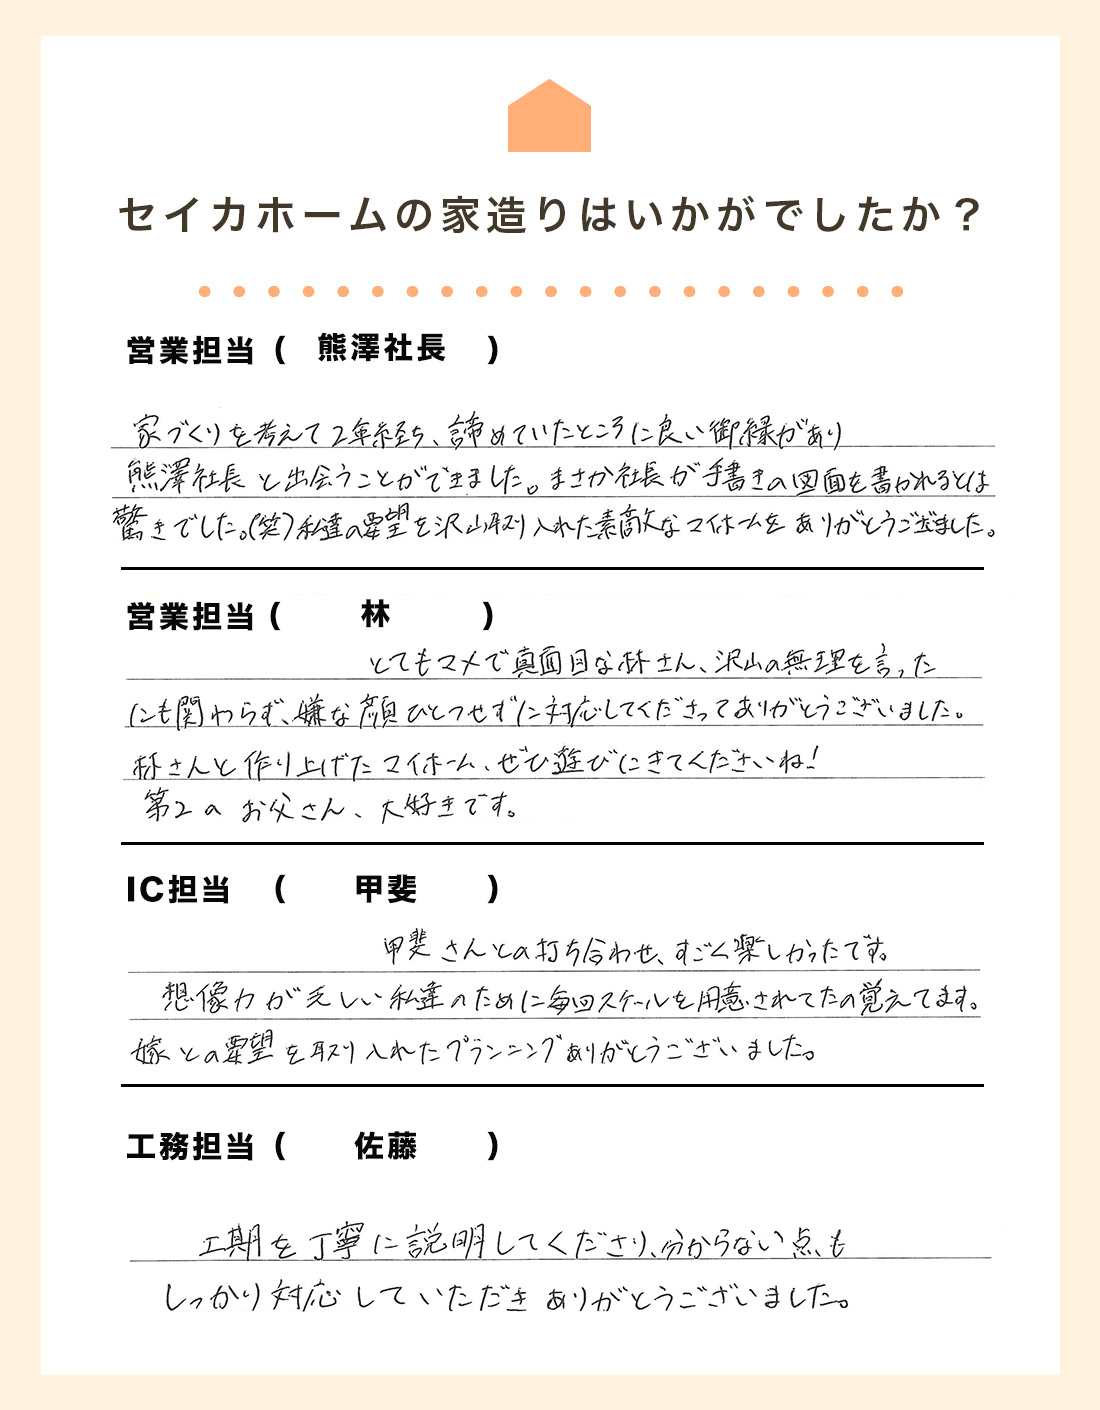 セイカホームの家造りはいかがでしたか？
営業担当 ( 熊澤社長 )
家づくりを考えて2年経ち、諦めていたところに良い御縁があり
熊澤社長と出会うことができました。まさか社長が手書きの図面を書かれるとは
驚きでした。(笑)私達の要望を沢山取り入れた素敵なマイホームをありがとうございました。
営業担当 ( 林 )
とてもマメで真面目な林さん、沢山の無理を言った
にも関わらず、嫌な顔ひとつせずに対応してくださってありがとうございました。
林さんと作り上げたマイホーム、ぜひ遊びにきてくださいね!
第2のお父さん、大好きです。
IC担当 ( 甲斐 )
甲斐さんとの打ち合わせ、すごく楽しかったです。
想像力が乏しい私達のために毎回スケールを用意されてたの覚えてます。
嫁との要望を取り入れたプランニングありがとうございました。
工務担当 ( 佐藤 )
工期を丁寧に説明してくださり、分からない点も
しっかり対応していただきありがとうございました。